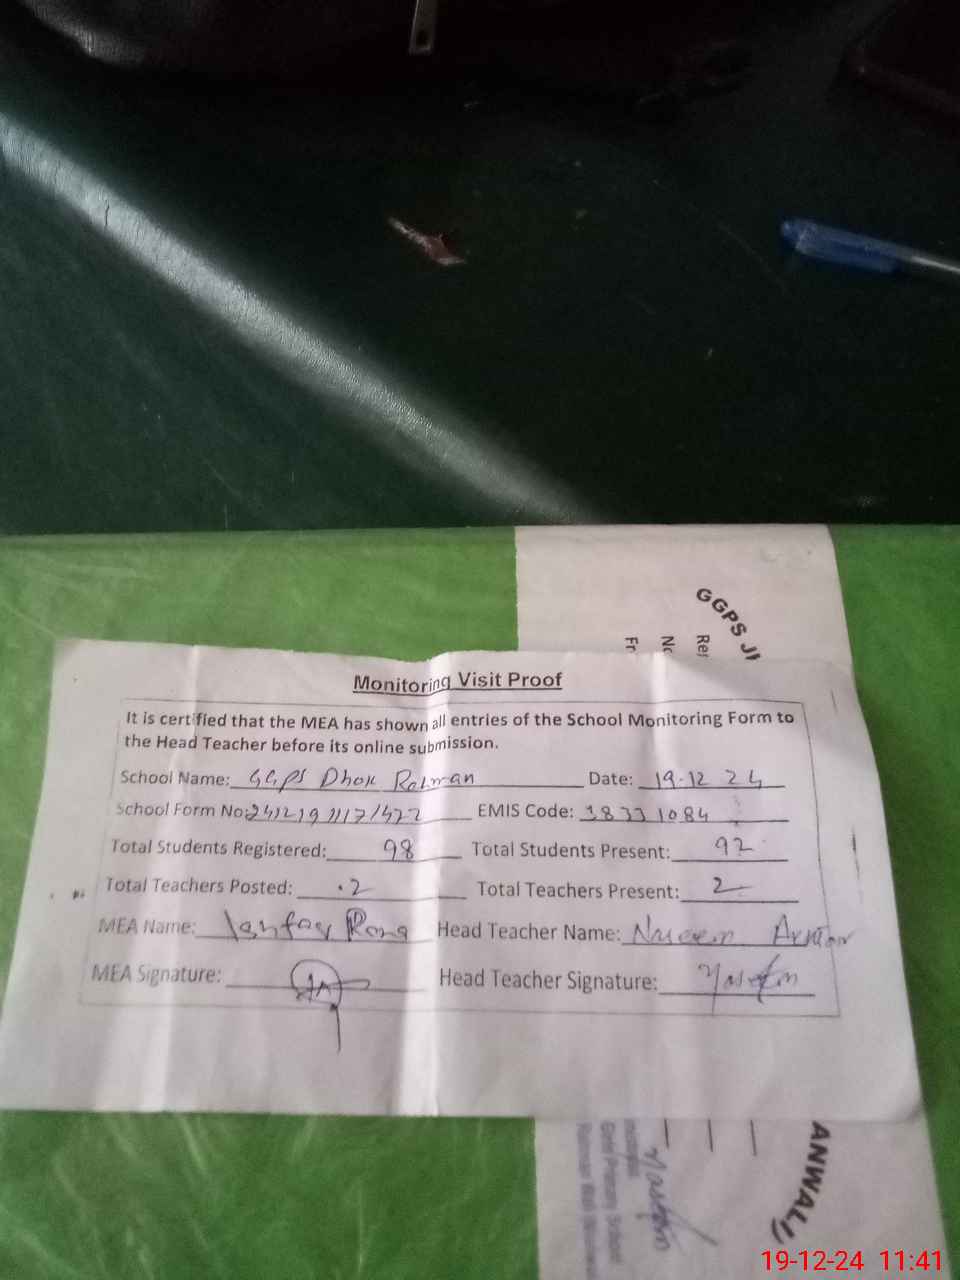 GGPS JI
Re
No
Fr
Monitoring Visit Proof
It is certified that the MEA has shown all entries of the School Monitoring Form to
the Head Teacher before its online submission.
School Name: GGPS Dhok Rehman Date: 19-12 24
School Form No: EMIS Code: 38331084
Total Students Registered: 98 Total Students Present: 92
Total Teachers Posted: 2 Total Teachers Present: 2
MEA Name: Head Teacher Name: Naseem Akhtar
MEA Signature: Head Teacher Signature: Naseem
ANWALI
Primary School
19-12-24 11:41